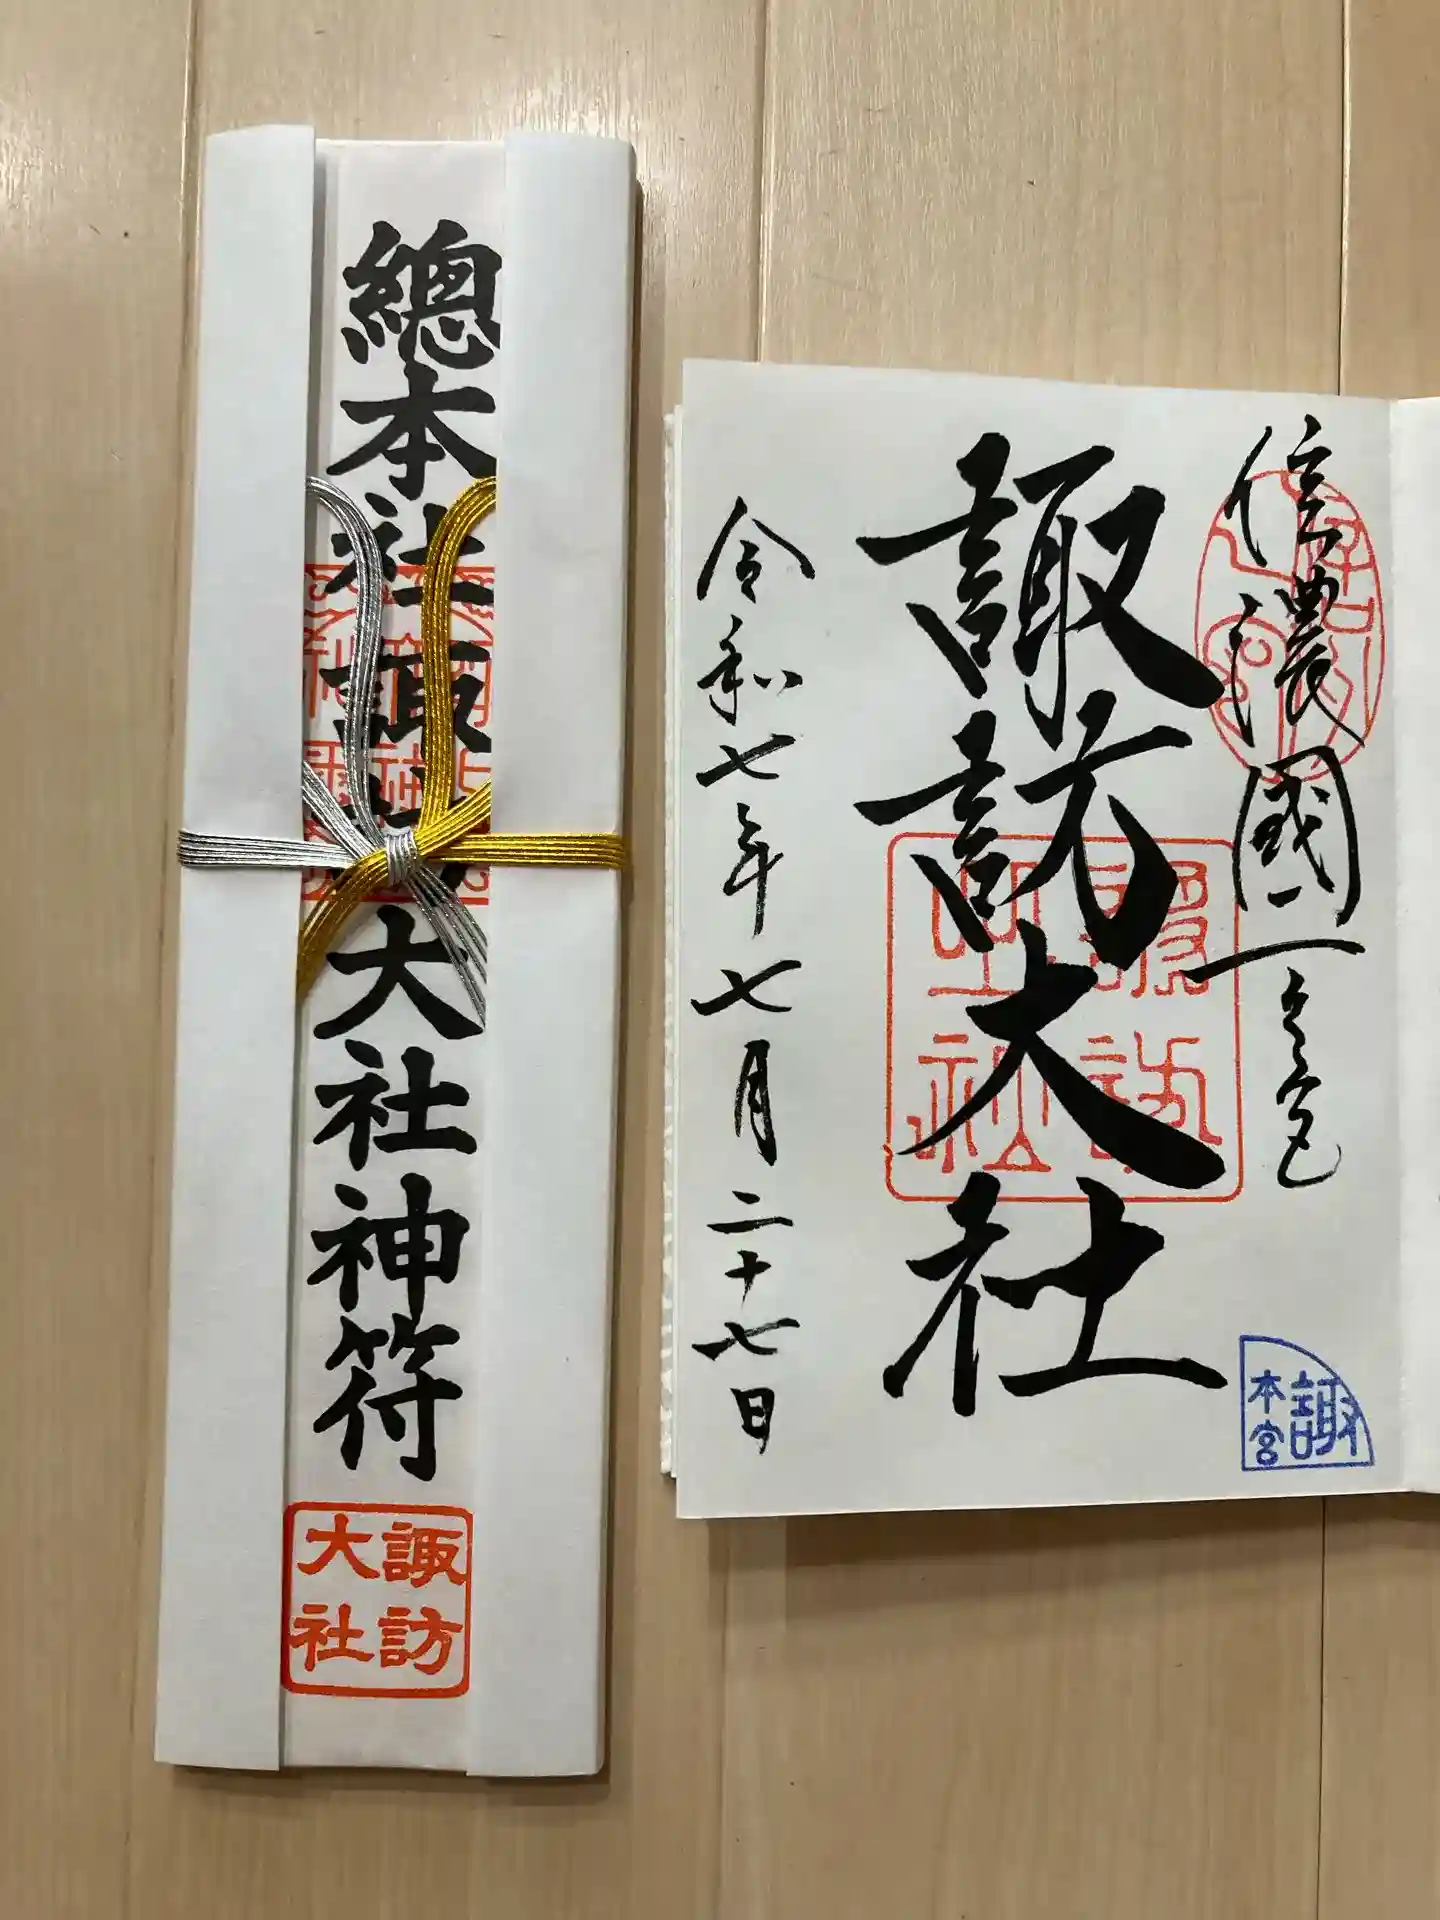 總本社諏訪大社神符
諏訪
大社
信濃國一之宮
諏訪大社
令和七年七月二十七日
諏
本宮